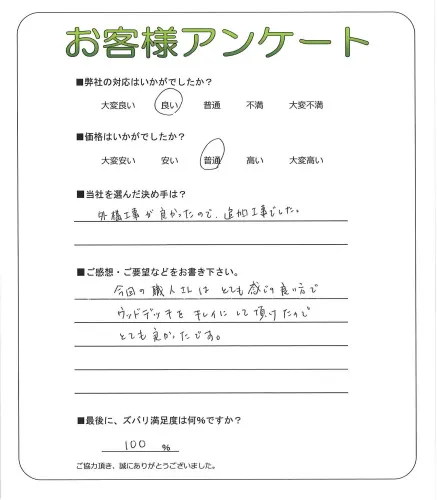 お客様アンケート
■弊社の対応はいかがでしたか？
大変良い 良い 普通 不満 大変不満
■価格はいかがでしたか？
大変安い 安い 普通 高い 大変高い
■当社を選んだ決め手は？
外構工事が良かったので、追加工事でした。
■ご感想・ご要望などをお書き下さい。
今回の職人さんはとても感じの良い方で
ウッドデッキをキレイにして頂けたので
とても良かったです。
■最後に、ズバリ満足度は何%ですか？
100 %
ご協力頂き、誠にありがとうございました。